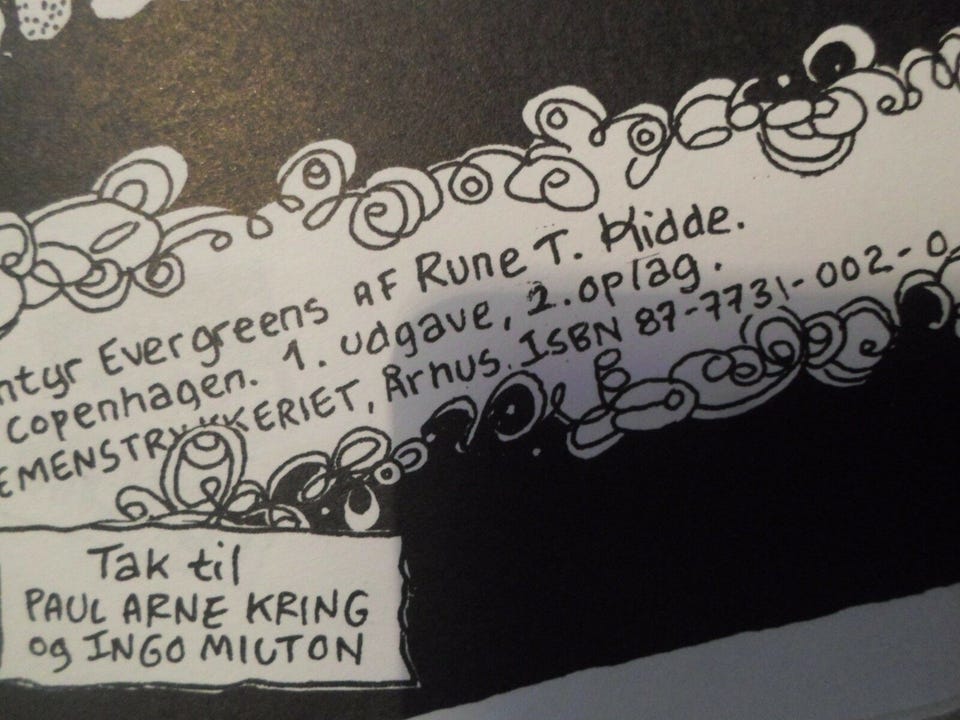 ntyr Evergreens AF Rune T. Kidde.
copenhagen. 1. udgave, 2. oplag.
EMENSTRYKKERIET, Århus. ISBN 87-7731-002-0
Tak til
PAUL ARNE KRING
og INGO MILTON